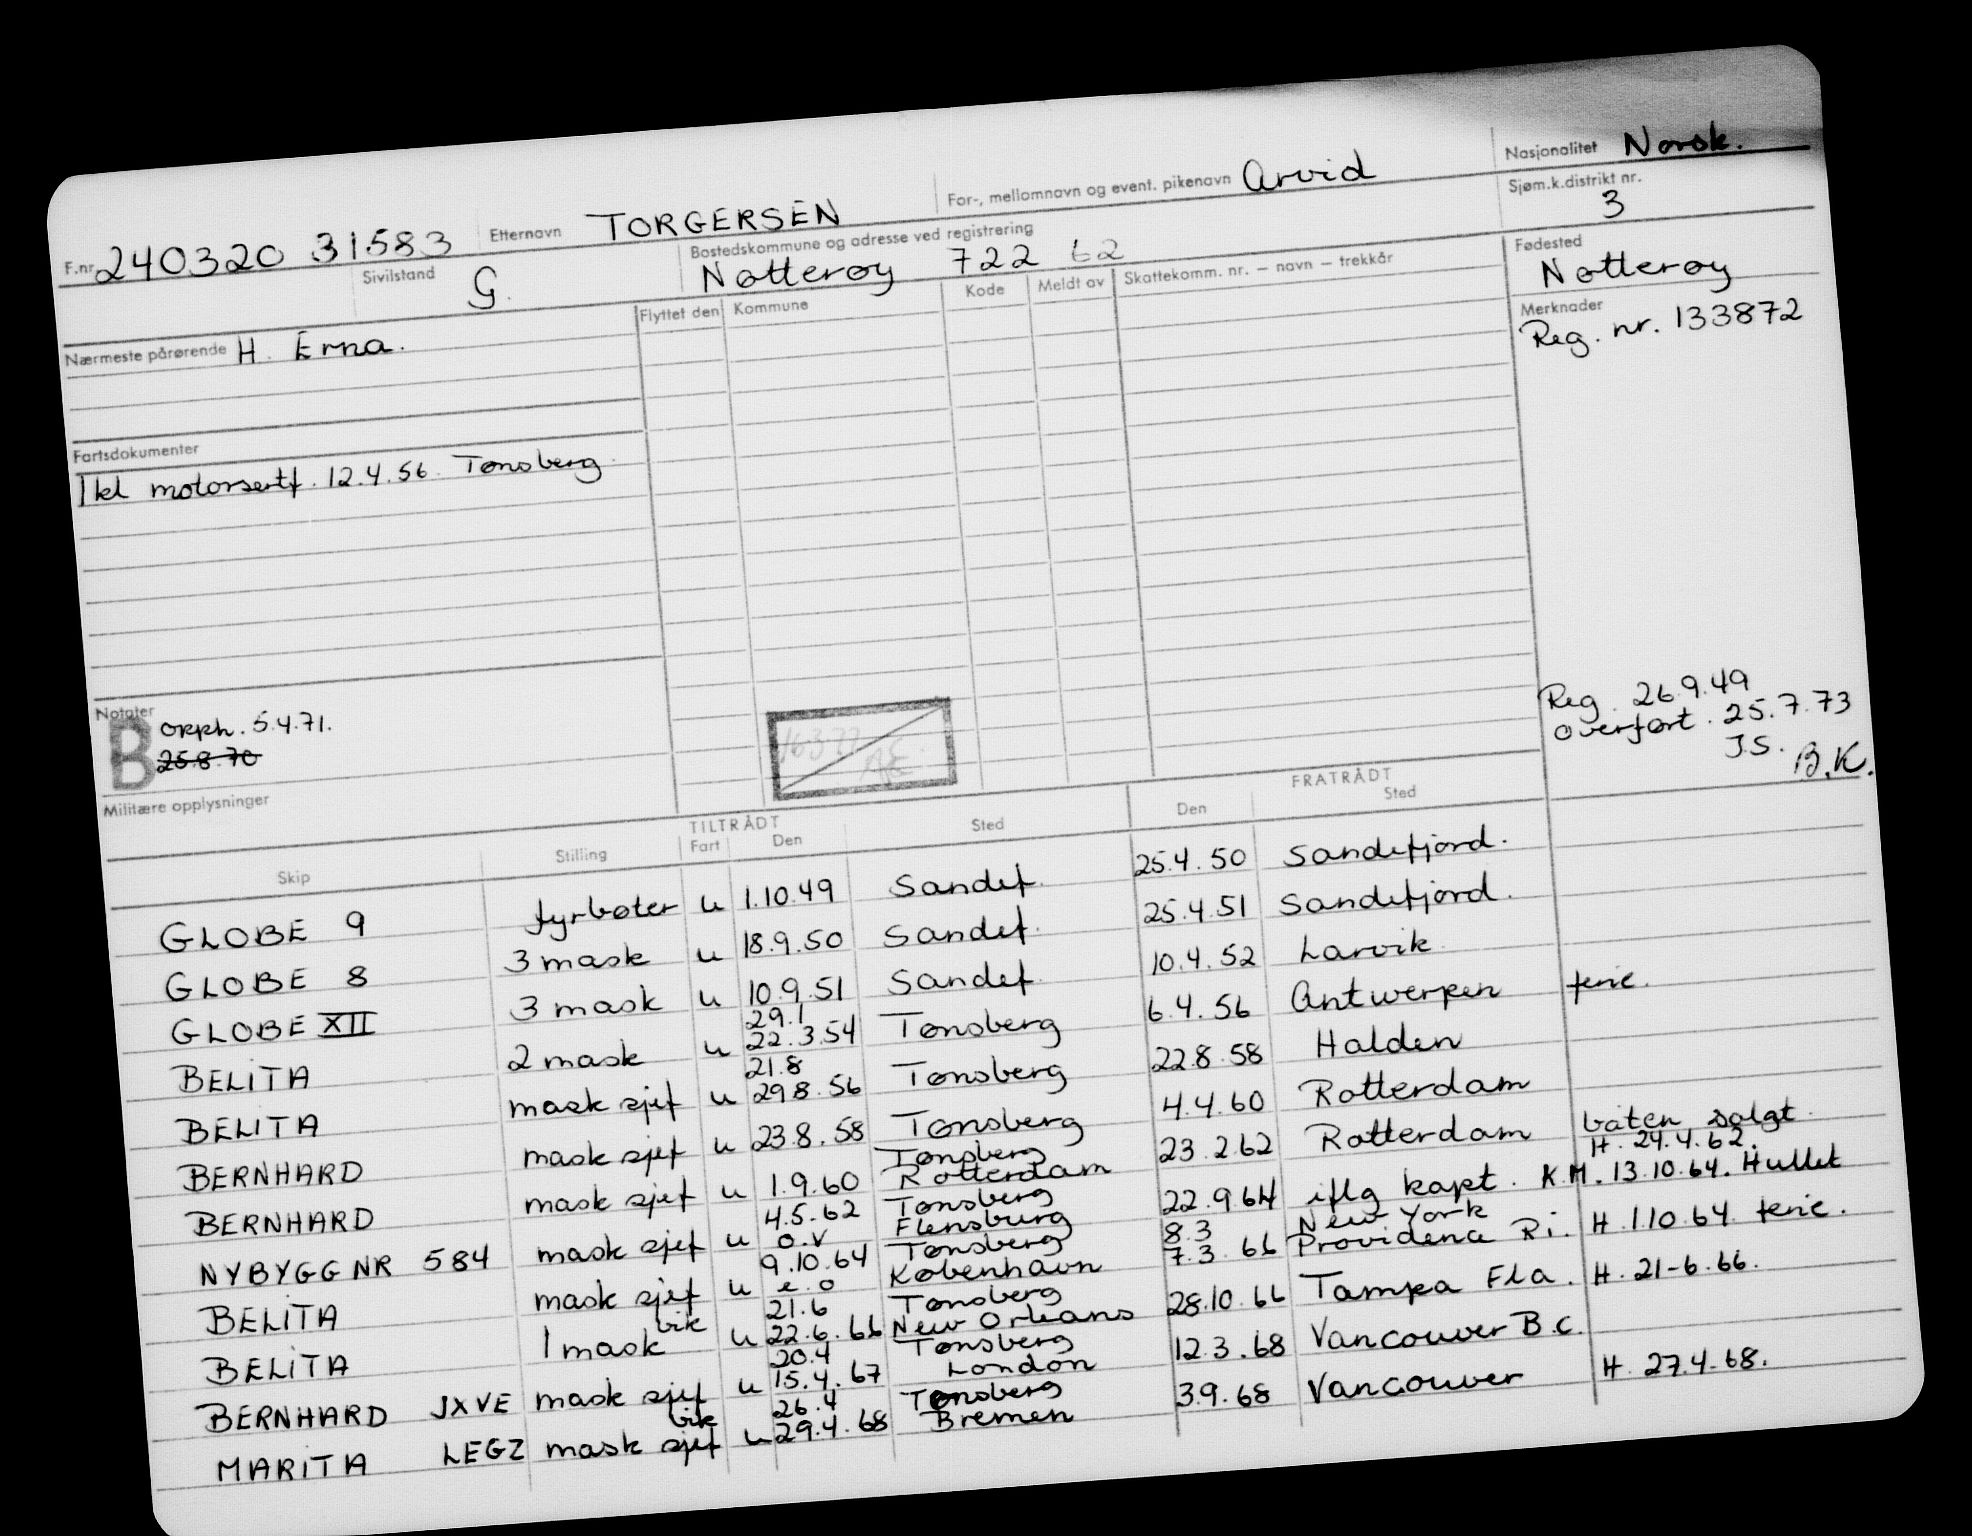 F.nr. 240320 31583 Etternavn TORGERSEN For-, mellomnavn og event. pikenavn Arvid Nasjonalitet Norsk.
Sivilstand G. Bostedskommune og adresse ved registrering Nøtterøy 722 62 Sjøm.k.distrikt nr. 3
Nærmeste pårørende H. Erna. Flyttet den Kommune Kode Meldt av Skattekomm. nr. – navn – trekkår Fødested Nøtterøy
Merknader
Reg. nr. 133872
Fartsdokumenter
1 kl motorsertf. 12.4.56. Tønsberg.
Notater
B opph. 5.4.71.
25.8.70
Reg. 26.9.49
overført. 25.7.73
J.S. B.K.
Militære opplysninger
TILTRÅDT FRATRÅDT
Skip Stilling Fart Den Sted Den Sted
GLOBE 9 fyrbøter u 1.10.49 Sandef. 25.4.50 Sandefjord.
GLOBE 8 3 mask u 18.9.50 Sandef. 25.4.51 Sandefjord.
GLOBE XII 3 mask u 10.9.51 Sandef. 10.4.52 Larvik
29.1
BELITA 2 mask u 22.3.54 Tønsberg 6.4.56 Antwerpen ferie.
21.8
BELITA mask sjef u 29.8.56 Tønsberg 22.8.58 Halden
BERNHARD mask sjef u 23.8.58 Tønsberg 4.4.60 Rotterdam
Tønsberg
BERNHARD mask sjef u 1.9.60 Rotterdam 23.2.62 Rotterdam båten solgt.
4.5.62 Tønsberg H. 24.4.62.
NYBYGG NR 584 mask sjef u o.v Flensburg 22.9.64 iflg kapt. K.M. 13.10.64. Hullet
9.10.64 Tønsberg 8.3 New York
BELITA mask sjef u e.o København 7.3.66 Providence Ri. H. 1.10.64. ferie.
vik 21.6 Tønsberg
BELITA 1 mask u 22.6.66 New Orleans 28.10.66 Tampa Fla. H. 21-6.66.
20.4 Tønsberg
BERNHARD JXVE mask sjef u 15.4.67 London 12.3.68 Vancouver B.C.
vik 26.4 Tønsberg
MARITA LEGZ mask sjef u 29.4.68 Bremen 3.9.68 Vancouver H. 27.4.68.